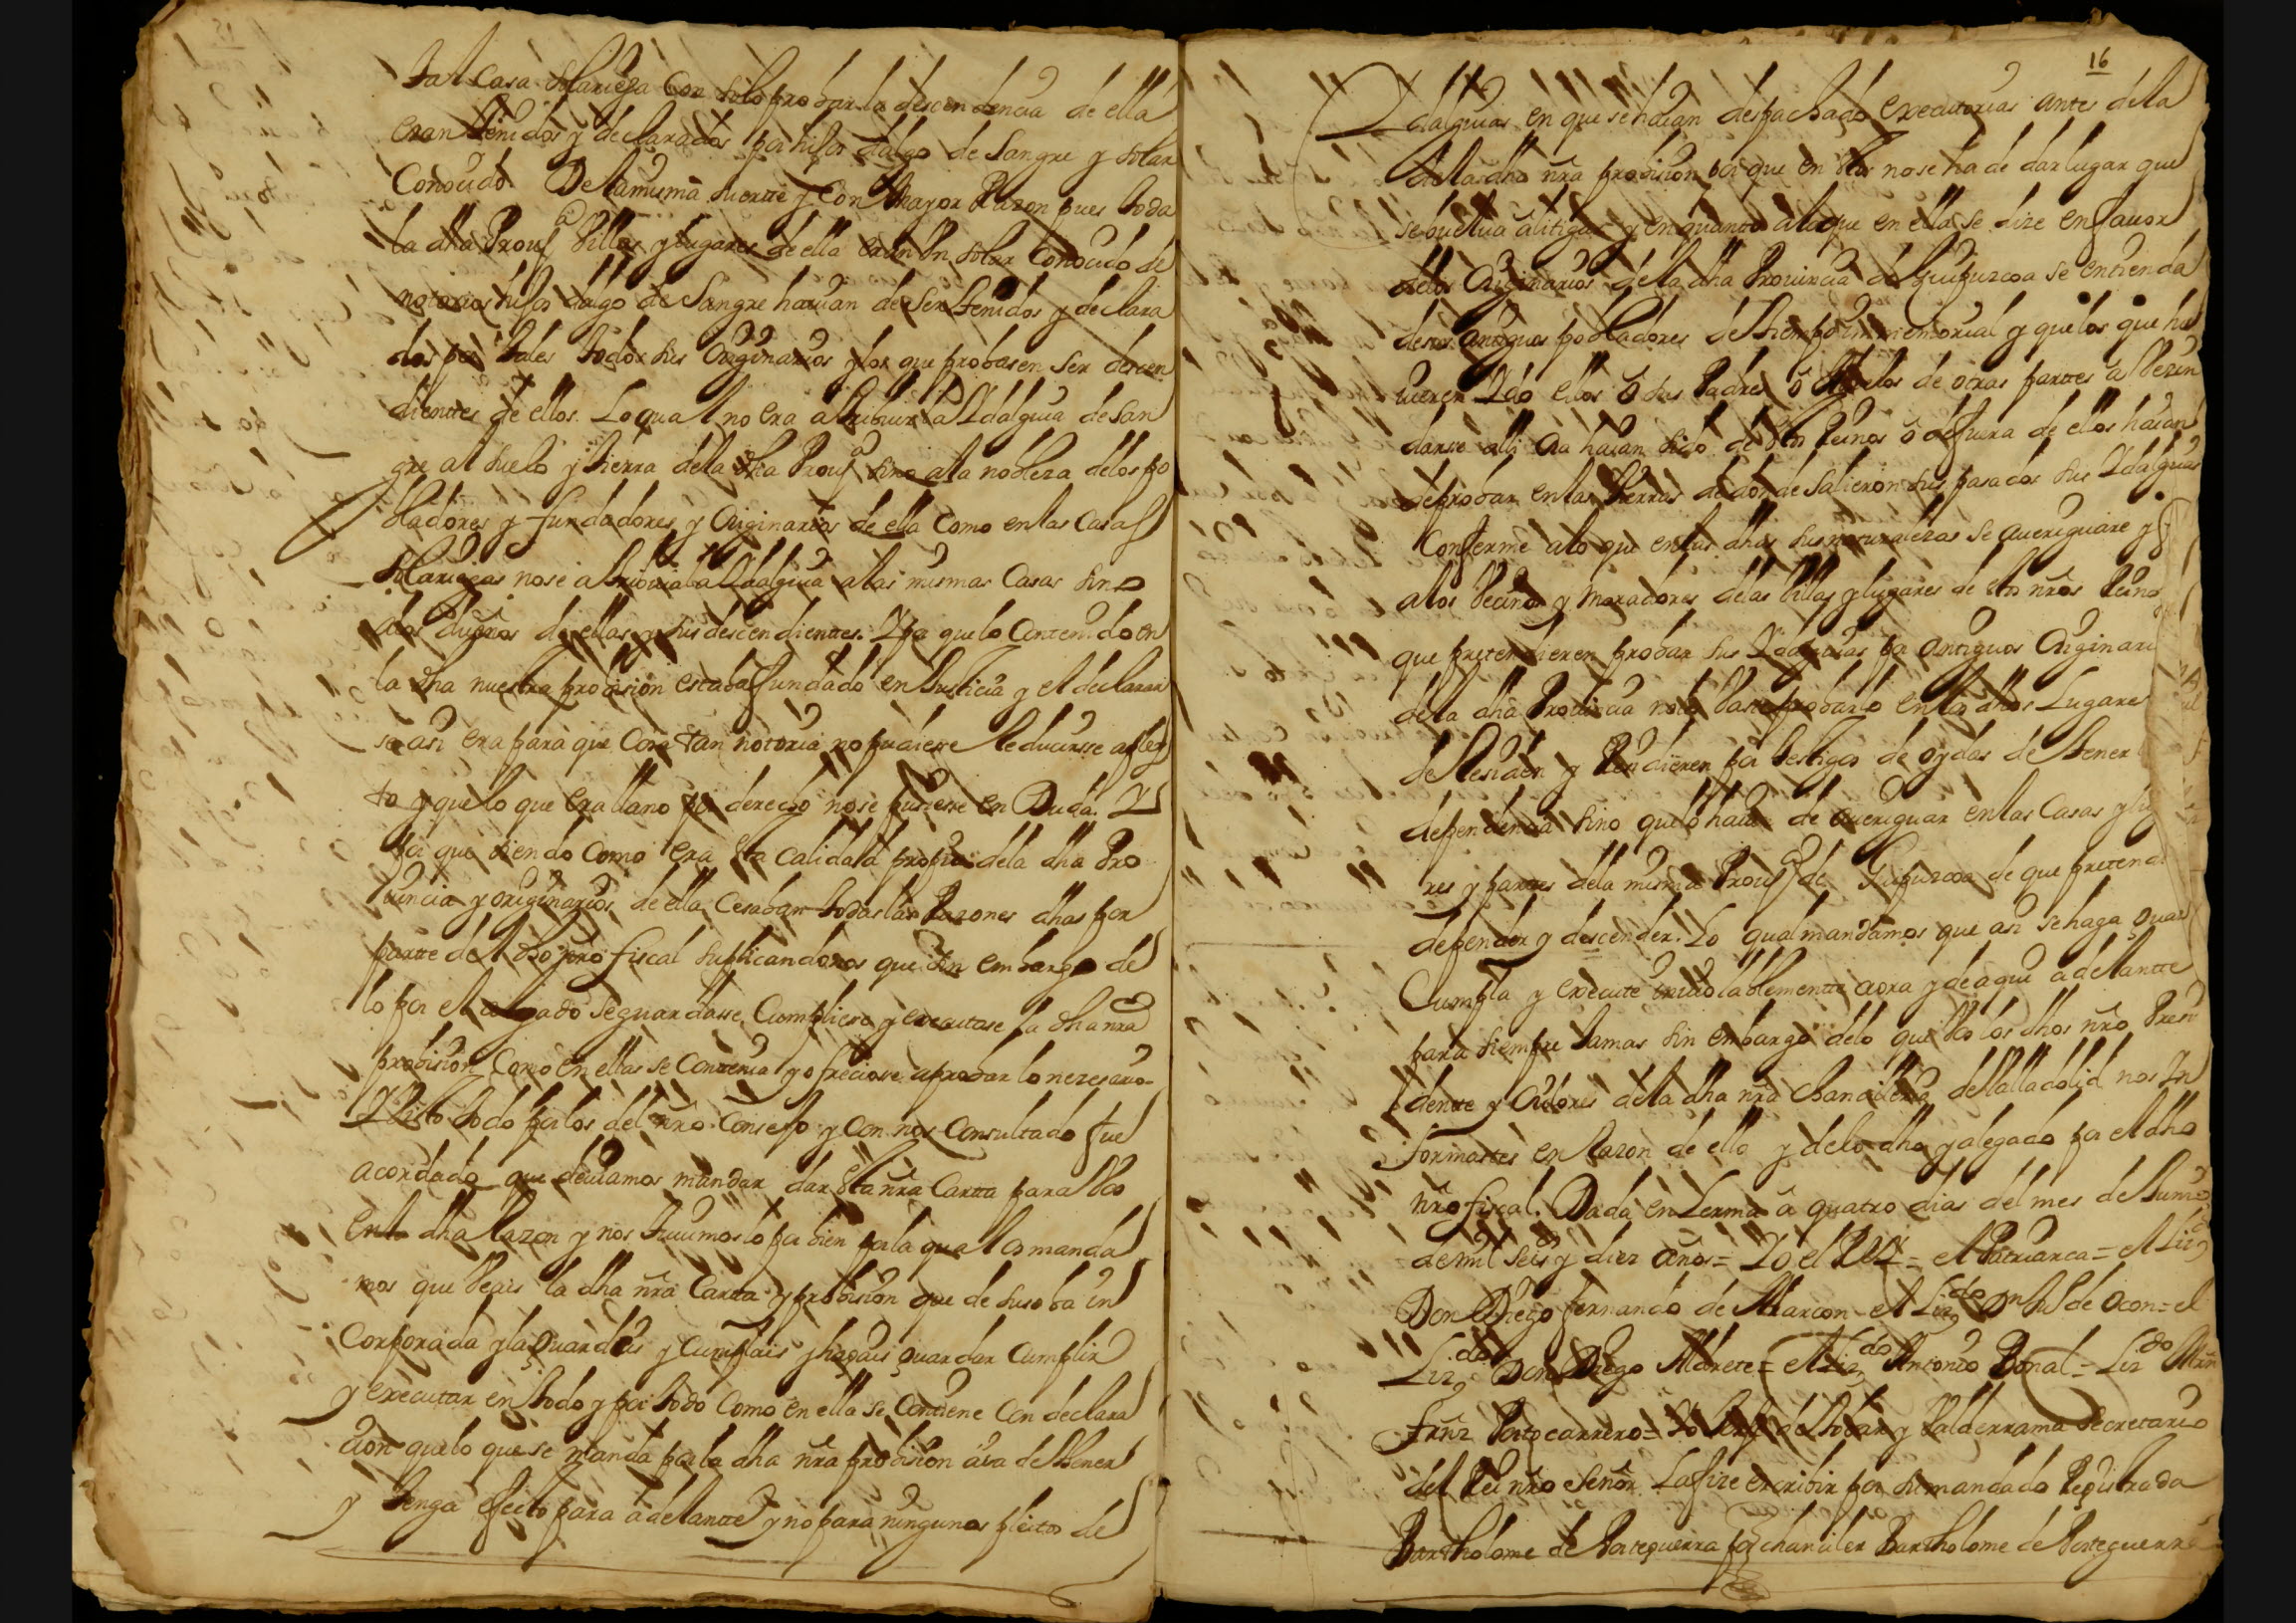 tal Casa solariega Con solo probar la descendencia de ella
eran tenidos y declarados por hijos dalgo de Sangre y solar
Conocido. De la misma suerte y Con mayor Razon pues toda
la dha Prou.ª Villas y lugares de ella eran Vn solar Conocido de
notorios hijos dalgo de Sangre hauian de Ser tenidos y declara
dos por tales todos sus Originarios y los que probasen Ser descen
dientes de ellos. Lo qual no era atribuir la Ydalguia de San
gre al suelo y tierra de la dha Prou.ª sino a la nobleza de los po
bladores y fundadores y Originarios de ella Como en las Casas
solariegas no se atribuia la Ydalguia a las mismas Casas sino
a los dueños de ellas y sus descendientes. Y por que lo Contenido en
la dha nuestra probision estaba fundado en Justicia y el declarar
se asi era para que Cosa tan notoria no pudiesse Reducirsse a pley
to y que lo que era llano por derecho no se pusiesse en Duda. Y
por que siendo Como era esta Calidad propia de la dha Pro
uincia y originarios de ella Cesaban todas las Razones dhas por
parte del dho nro fiscal suplicandonos que sin embargo de
lo por el alegado se guardasse, Cumpliese y executase la dha nra
probision Como en ellas se Contenia y ofreciose a probar lo nezesario
Y Visto todo por los del nro Consejo y Con nos Consultado fue
acordado que deuiamos mandar dar esta nra Cartta para Vos
en la dha Razon y nos tuuimoslo por bien por la qual os manda
mos que Veais la dha nra Carta y probision que de suso ba in
Corporada y la guardeis y Cumplais y hagais guardar Cumplir
y executar en todo y por todo Como en ella se Contiene Con declara
cion que lo que se manda por la dha nra probision aia de tener
y tenga efecto para adelantte y no para ningunos pleitos de
16
Ydalguias en que se hauian despachado executorias antes de la
de la dha nra probision por que en estos no se ha de dar lugar que
se buelua a litigar y en quanto a lo que en ella se dize en fauor
de los Originarios de la dha Prouincia de Guipuzcoa se entienda
de sus antiguos pobladores de tiempo inmemorial y que los que hu
uieren Ydo ellos ô sus Padres ô Abuelos de otras partes a Vezin
darse alli Ora haian sido de estos Reinos ô de fuera de ellos haian
de probar en las tierras de donde Salieron sus pasados sus Ydalguias
Conferme a lo que en las dhas sus naturalezas se aueriguare y
a los Vecinos y moradores de las Villas y lugares de estos nros Reino
que pretendieren probar sus Ydalguias por antiguos Originari
de la dha Prouincia no les baste probarlo en los dhos Lugares
de Residen y Residieren por testigos de oydas de tener
dependencia sino que lo haian de aueriguar en las Casas y lu
res y partes de la misma Prou.ª de Guipuzcoa de que pretend
depender y descender. Lo qual mandamos que asi se haga guar
Cumpla y execute inuiolablemente aora y de aqui adelantte
para siempre Jamas sin embargo de lo que Vos los dhos nro Presi
dente y Oidores de la dha nra Chancilleria de Valladolid nos In
formastes en Razon de ello y de lo dho y alegado por el dho
nro fiscal. Dada en Lerma a quatro dias del mes de Junio
de mil seis y diez años = Yo el Rey = el Patriarca = el Liz.do
Don Diego fernando de Alarcon = el Liz.do Don Gil de Ocon = el
Liz.do Don Diego Aldrete = el Liz.do Antonio Bonal = Liz.do Mrn
frnz Portocarrero = Yo Jorge de Tobar y Valderrama Secretario
del Rei nro Señor La fize escribir por su mandado Registrada
Bartholome de Porteguerra por chanciler Bartholome de Porteguerra